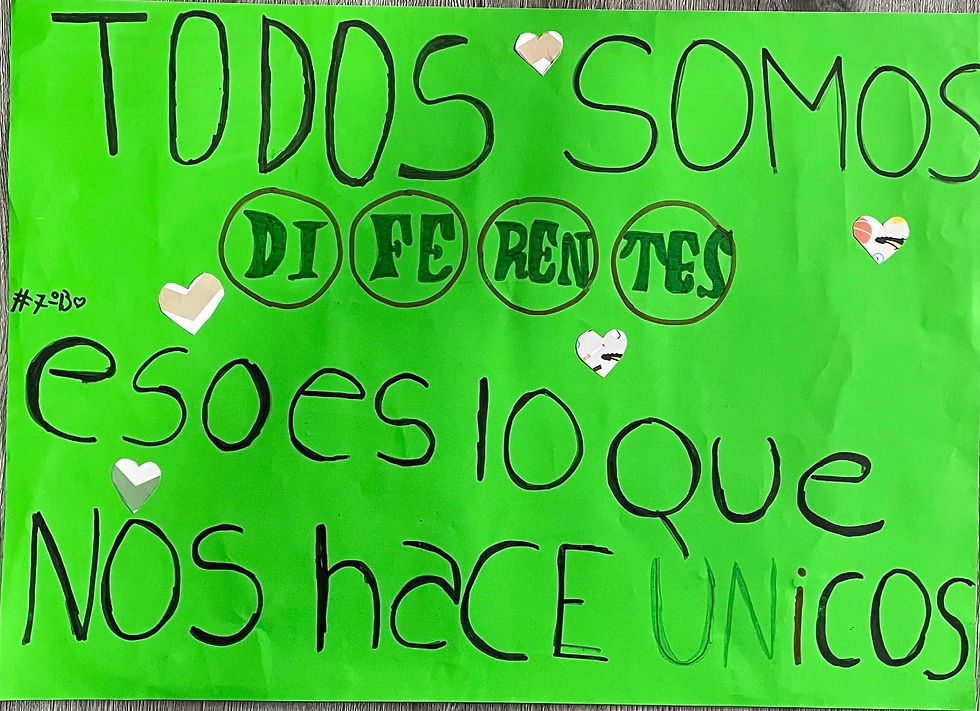 TODOS SOMOS
DIFERENTES
#7ºB♡
eso es lo que
NOS haCE UNiCOS